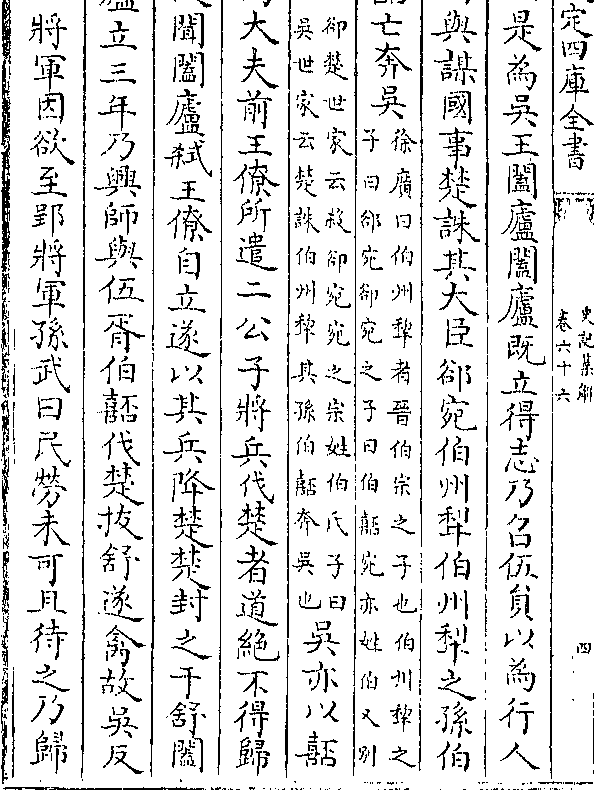 定四庫全書
史記集解
卷六十六
四
是為吳王闔廬闔廬既立得志乃召伍員以為行人
與謀國事楚誅其大臣郤宛伯州犁伯州犁之孫伯
亡奔吳
徐廣曰伯州犂者晉伯宗之子也伯州犂之
子曰郤宛郤宛之子曰伯嚭宛亦姓伯又别
郤楚世家云殺郤宛宛之宗姓伯氏子曰
吳世家云楚誅伯州犂其孫伯嚭奔吳也
吳亦以嚭
大夫前王僚所遣二公子將兵伐楚者道絶不得歸
聞闔廬弑王僚自立遂以其兵降楚楚封之于舒闔
廬立三年乃興師與伍胥伯嚭伐楚拔舒遂禽故吳反
將軍因欲至郢將軍孫武曰民勞未可且待之乃歸